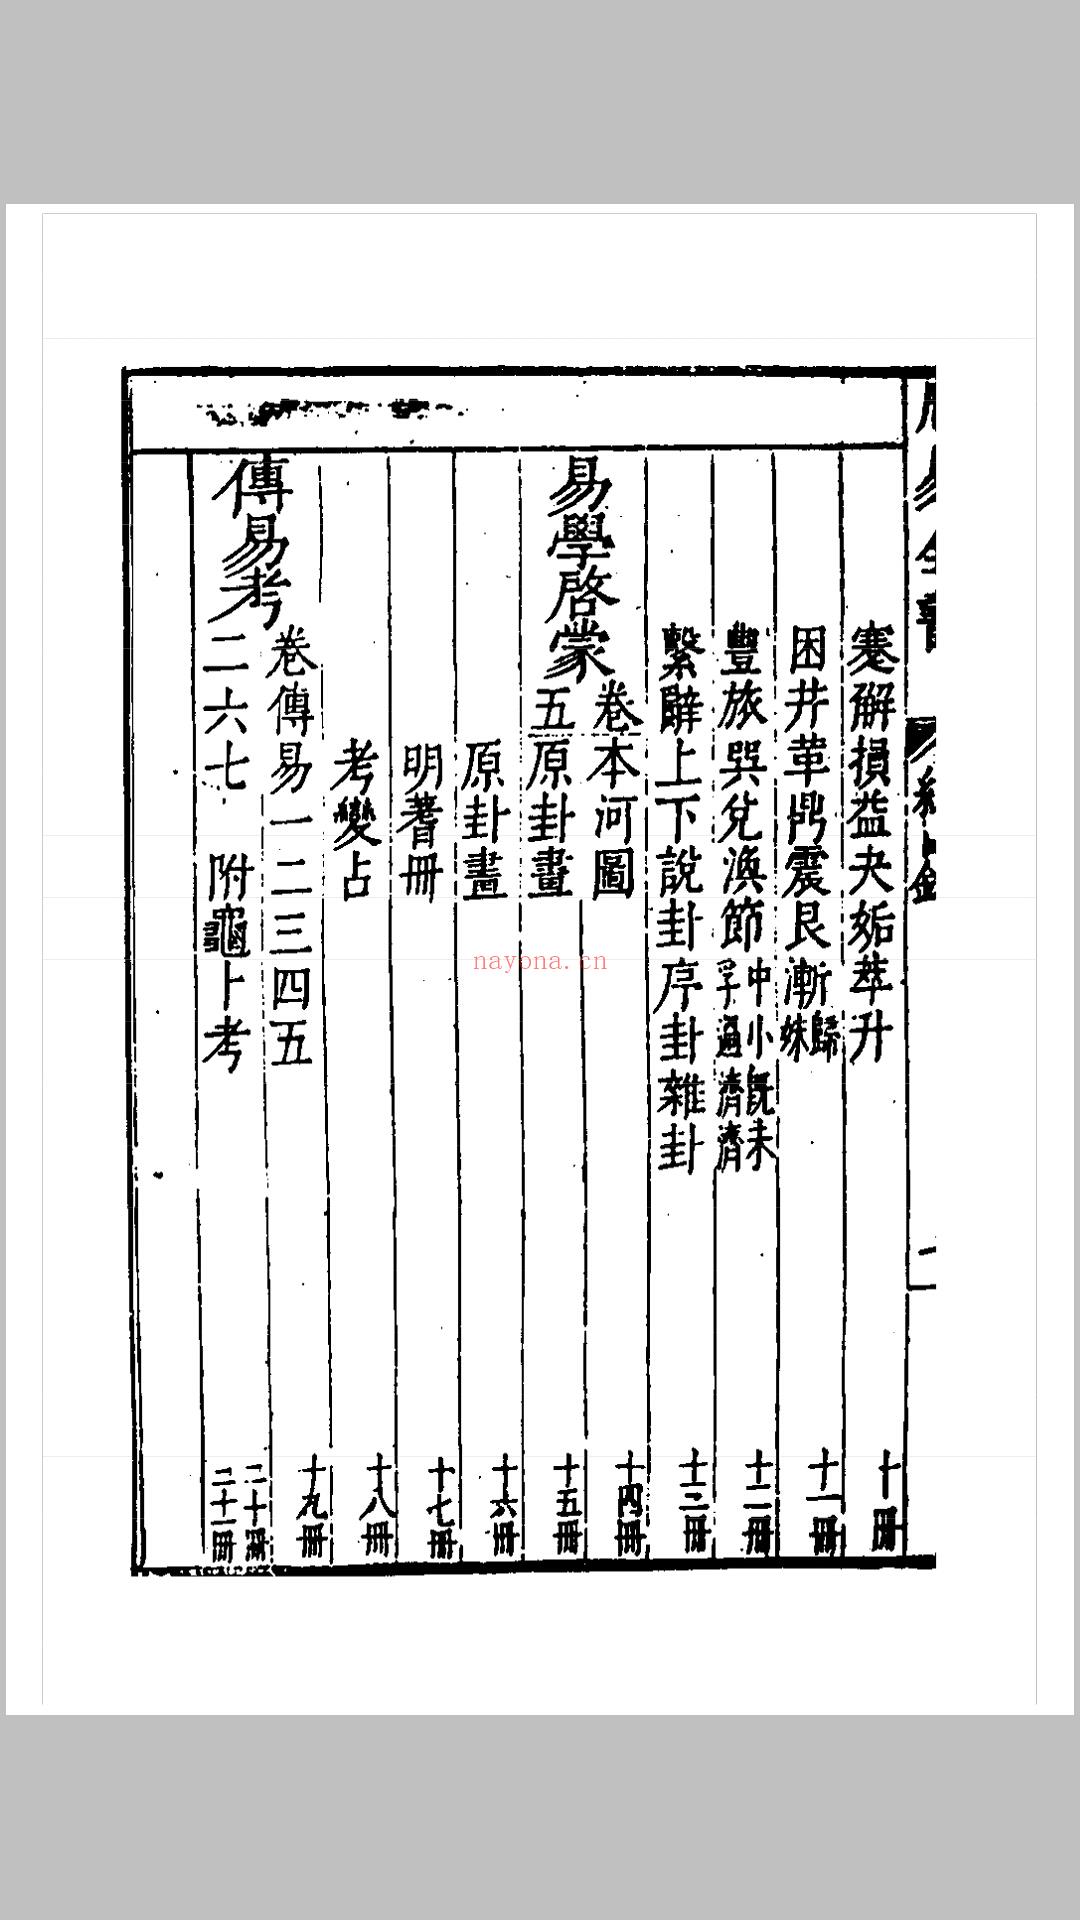 周易全書 總目錄 二
蹇解損益夬姤萃升 十冊
困井革鼎震艮漸歸妹 十一冊
豐旅巽兌渙節中孚小過既濟未濟 十二冊
繫辭上下說卦序卦雜卦 十三冊
易學啓蒙
卷本河圖 十四冊
五原卦畫 十五冊
原卦畫 十六冊
明蓍冊 十七冊
考變占 十八冊
傳易考
卷傳易一二三四五 十九冊
二六七 附龜卜考 二十冊 二十一冊
nayona.cn